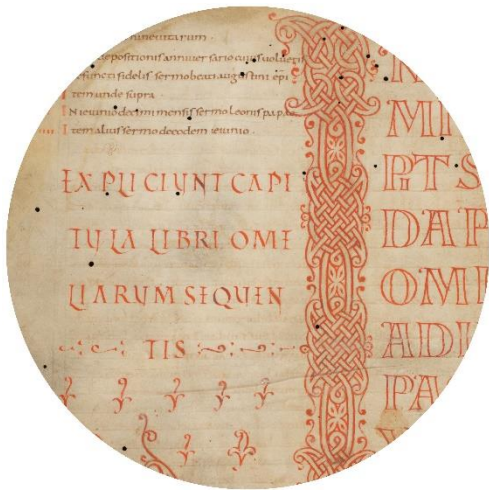 depositionis anniversario cuius volueris
defuncti fidelis sermo beati augustini epi
Item unde supra
In ieiunio decimi mensis sermo leonis papae
Item alius sermo de eodem ieiunio.
EXPLICIUNT CAPI
TULA LIBRI OME
LIARUM SEQUEN
TIS
MI
PITS
DAP
OMI
ADI
PA